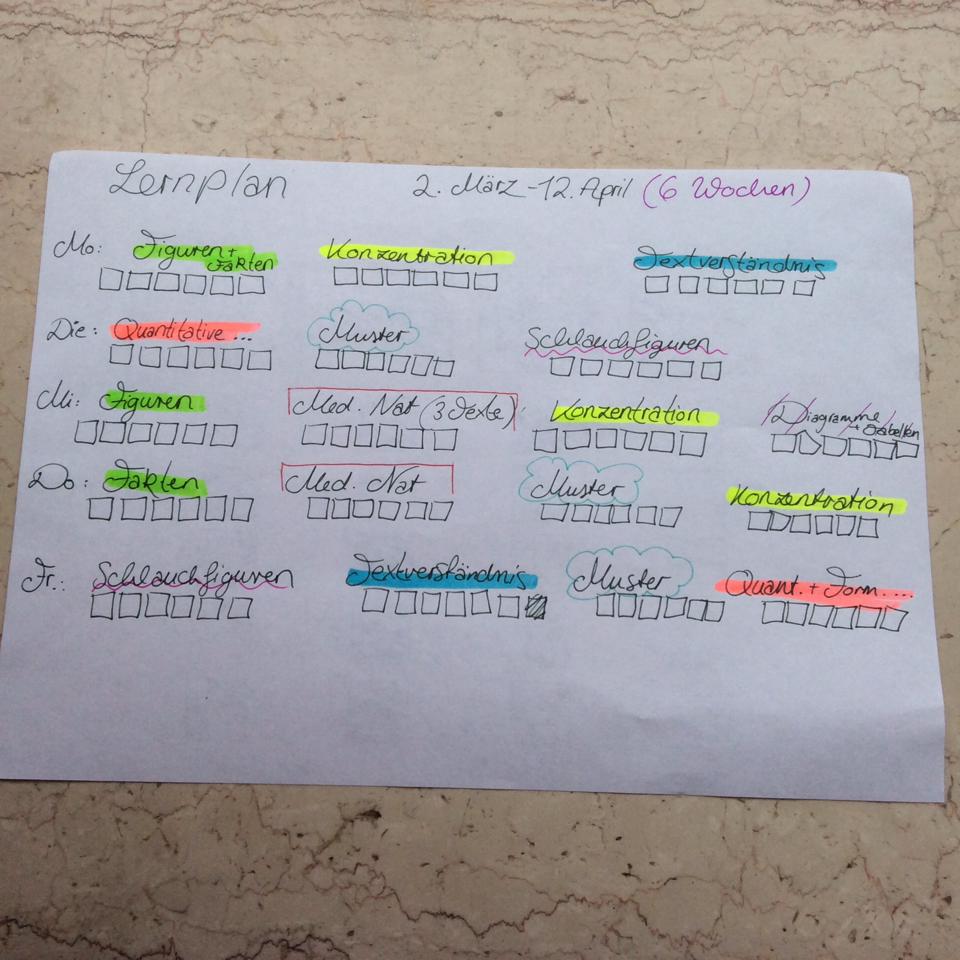 Lernplan 2. März - 12. April (6 Wochen)
Mo: Figuren + Fakten Konzentration Textverständnis
Die: Quantitative ... Muster Schlauchfiguren
Mi: Figuren Med. Nat (3 Texte) Konzentration Diagramme + Tabellen
Do: Fakten Med. Nat Muster Konzentration
Fr.: Schlauchfiguren Textverständnis Muster Quant. + Form. ...